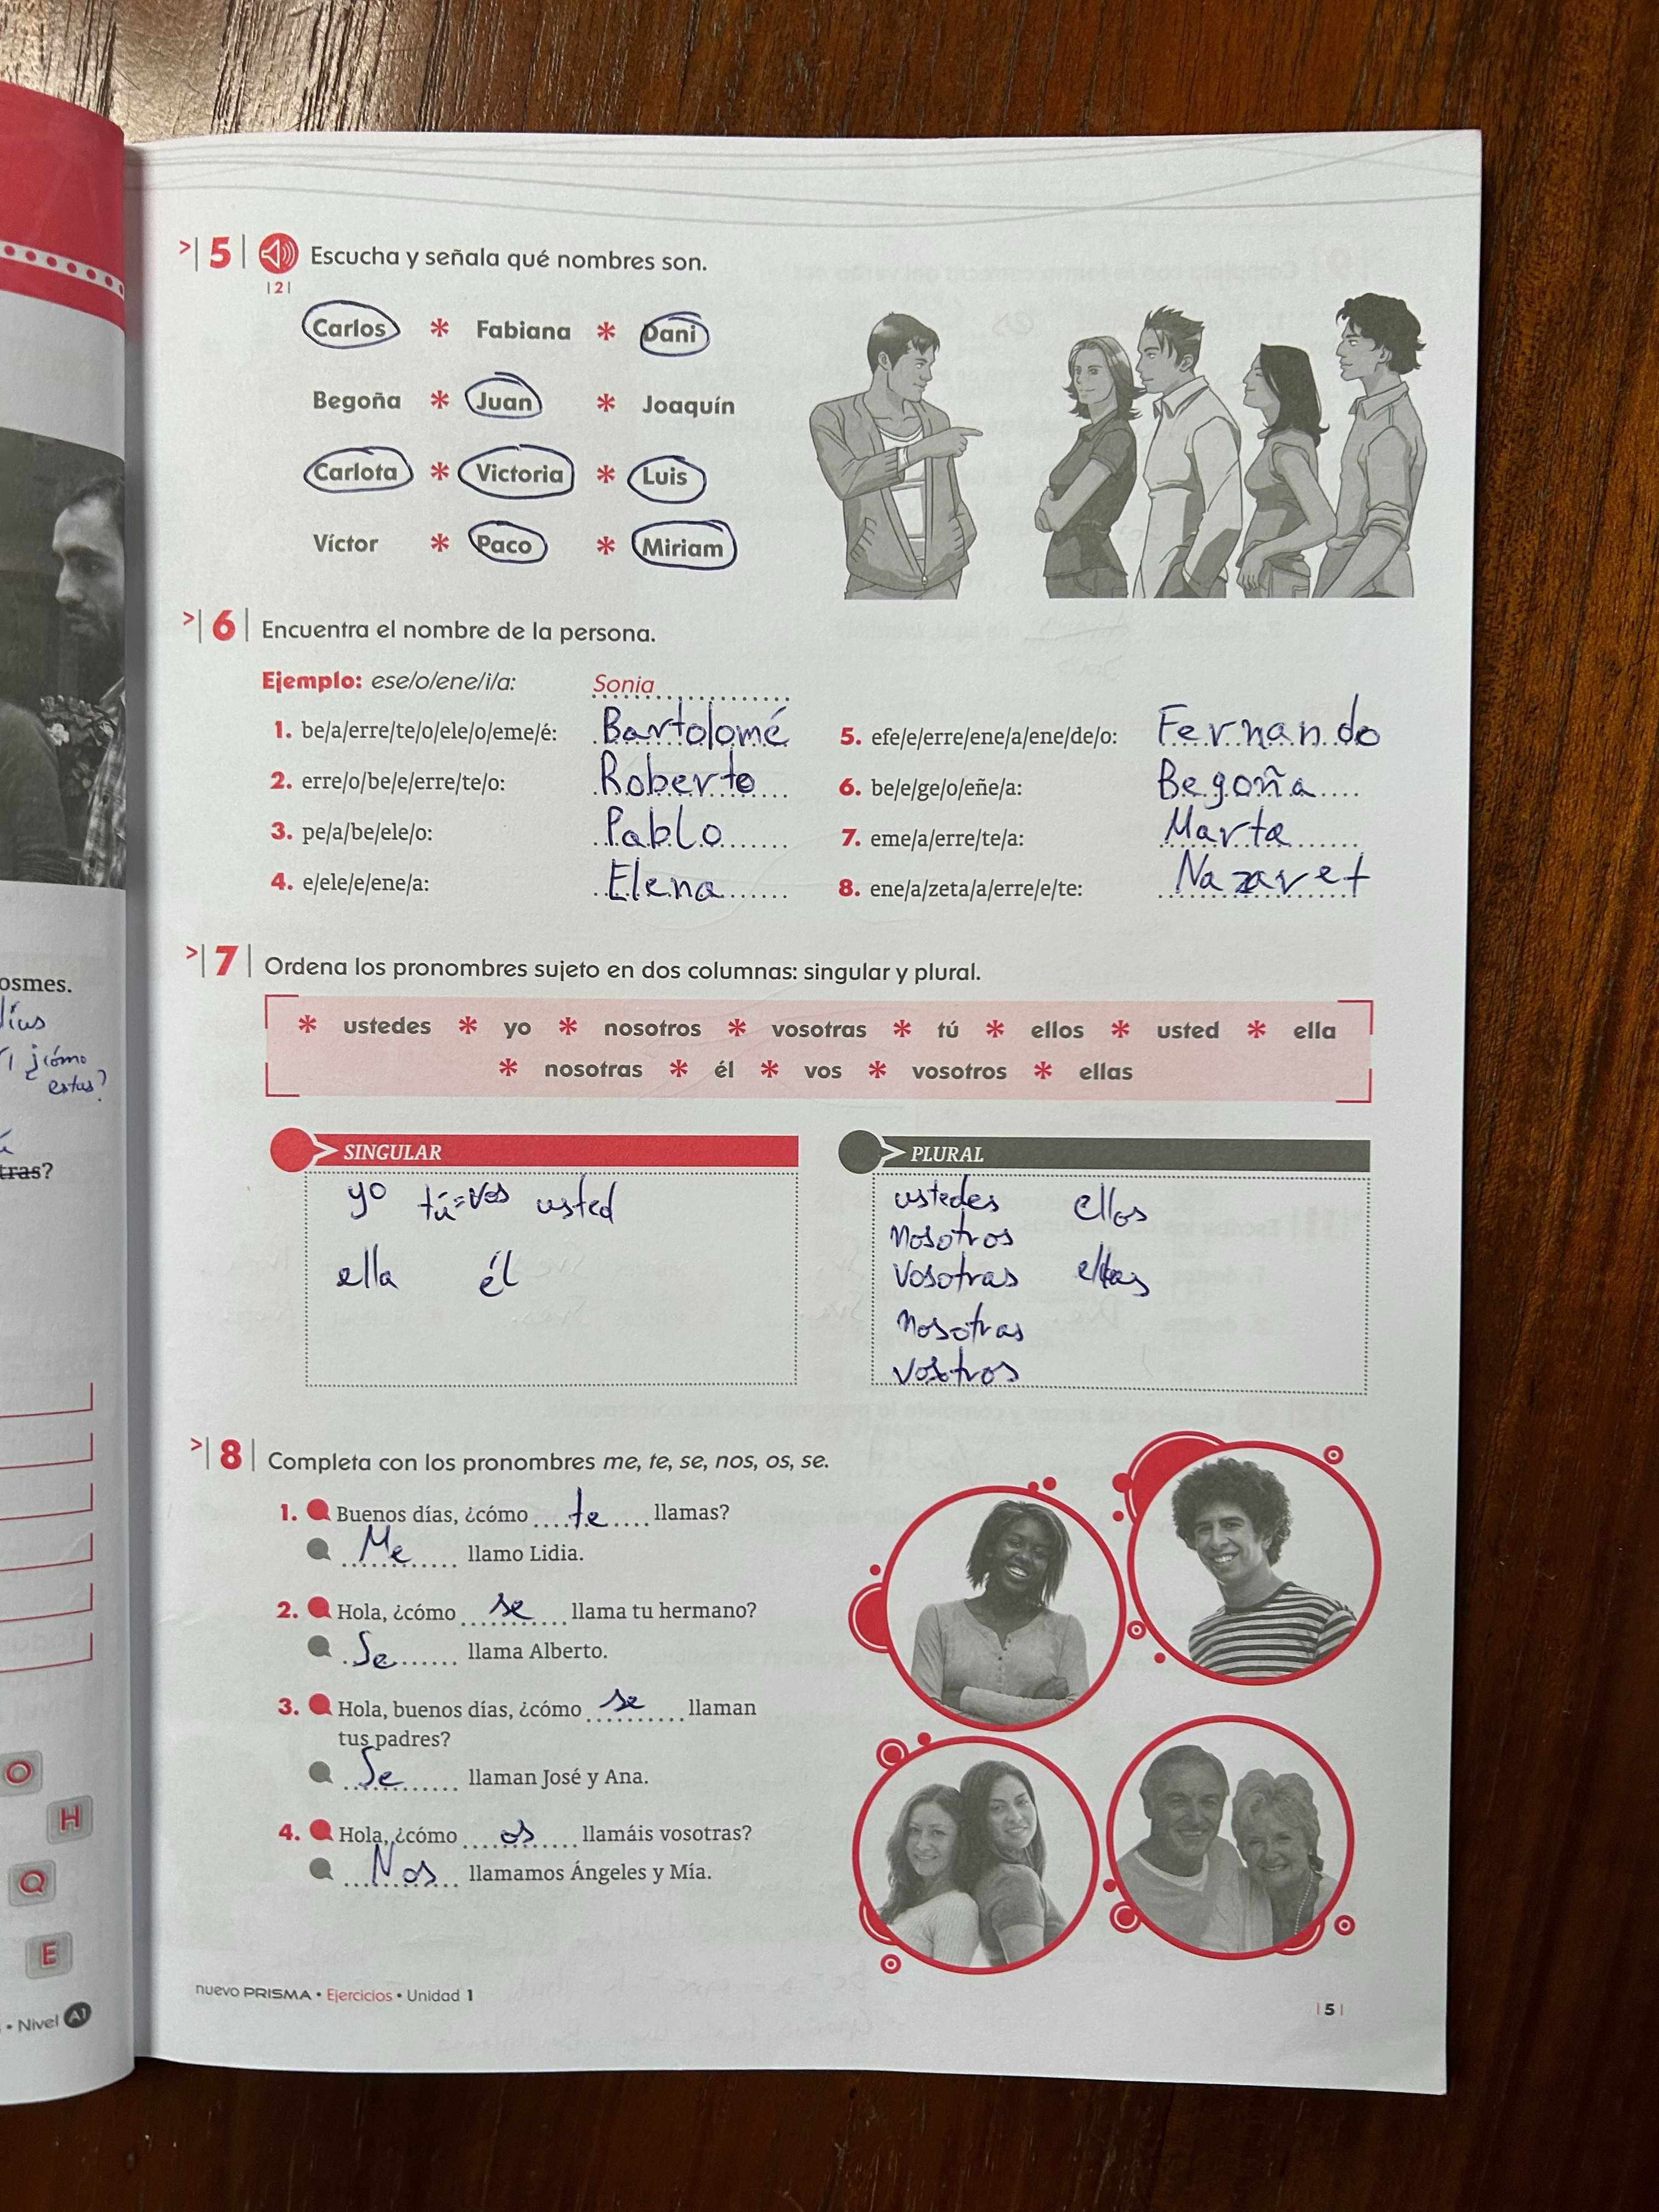 >| 5 | Escucha y señala qué nombres son.
|2|
Carlos * Fabiana * Dani
Begoña * Juan * Joaquín
Carlota * Victoria * Luis
Víctor * Paco * Miriam
>| 6 | Encuentra el nombre de la persona.
Ejemplo: ese/o/ene/i/a: Sonia
1. be/a/erre/te/o/ele/o/eme/é: Bartolomé
2. erre/o/be/e/erre/te/o: Roberto
3. pe/a/be/ele/o: Pablo
4. e/ele/e/ene/a: Elena
5. efe/e/erre/ene/a/ene/de/o: Fernando
6. be/e/ge/o/eñe/a: Begoña
7. eme/a/erre/te/a: Marta
8. ene/a/zeta/a/erre/e/te: Nazaret
>| 7 | Ordena los pronombres sujeto en dos columnas: singular y plural.
* ustedes * yo * nosotros * vosotras * tú * ellos * usted * ella
* nosotras * él * vos * vosotros * ellas
SINGULAR
yo tú=vos usted
ella él
PLURAL
ustedes ellos
nosotros
vosotras ellas
nosotras
vosotros
>| 8 | Completa con los pronombres me, te, se, nos, os, se.
1. Buenos días, ¿cómo te llamas?
Me llamo Lidia.
2. Hola, ¿cómo se llama tu hermano?
Se llama Alberto.
3. Hola, buenos días, ¿cómo se llaman
tus padres?
Se llaman José y Ana.
4. Hola, ¿cómo os llamáis vosotras?
Nos llamamos Ángeles y Mía.
nuevo PRISMA • Ejercicios • Unidad 1
|5|
osmes.
días
¿cómo
estas?
tras?
O
H
Q
E
• Nivel A1